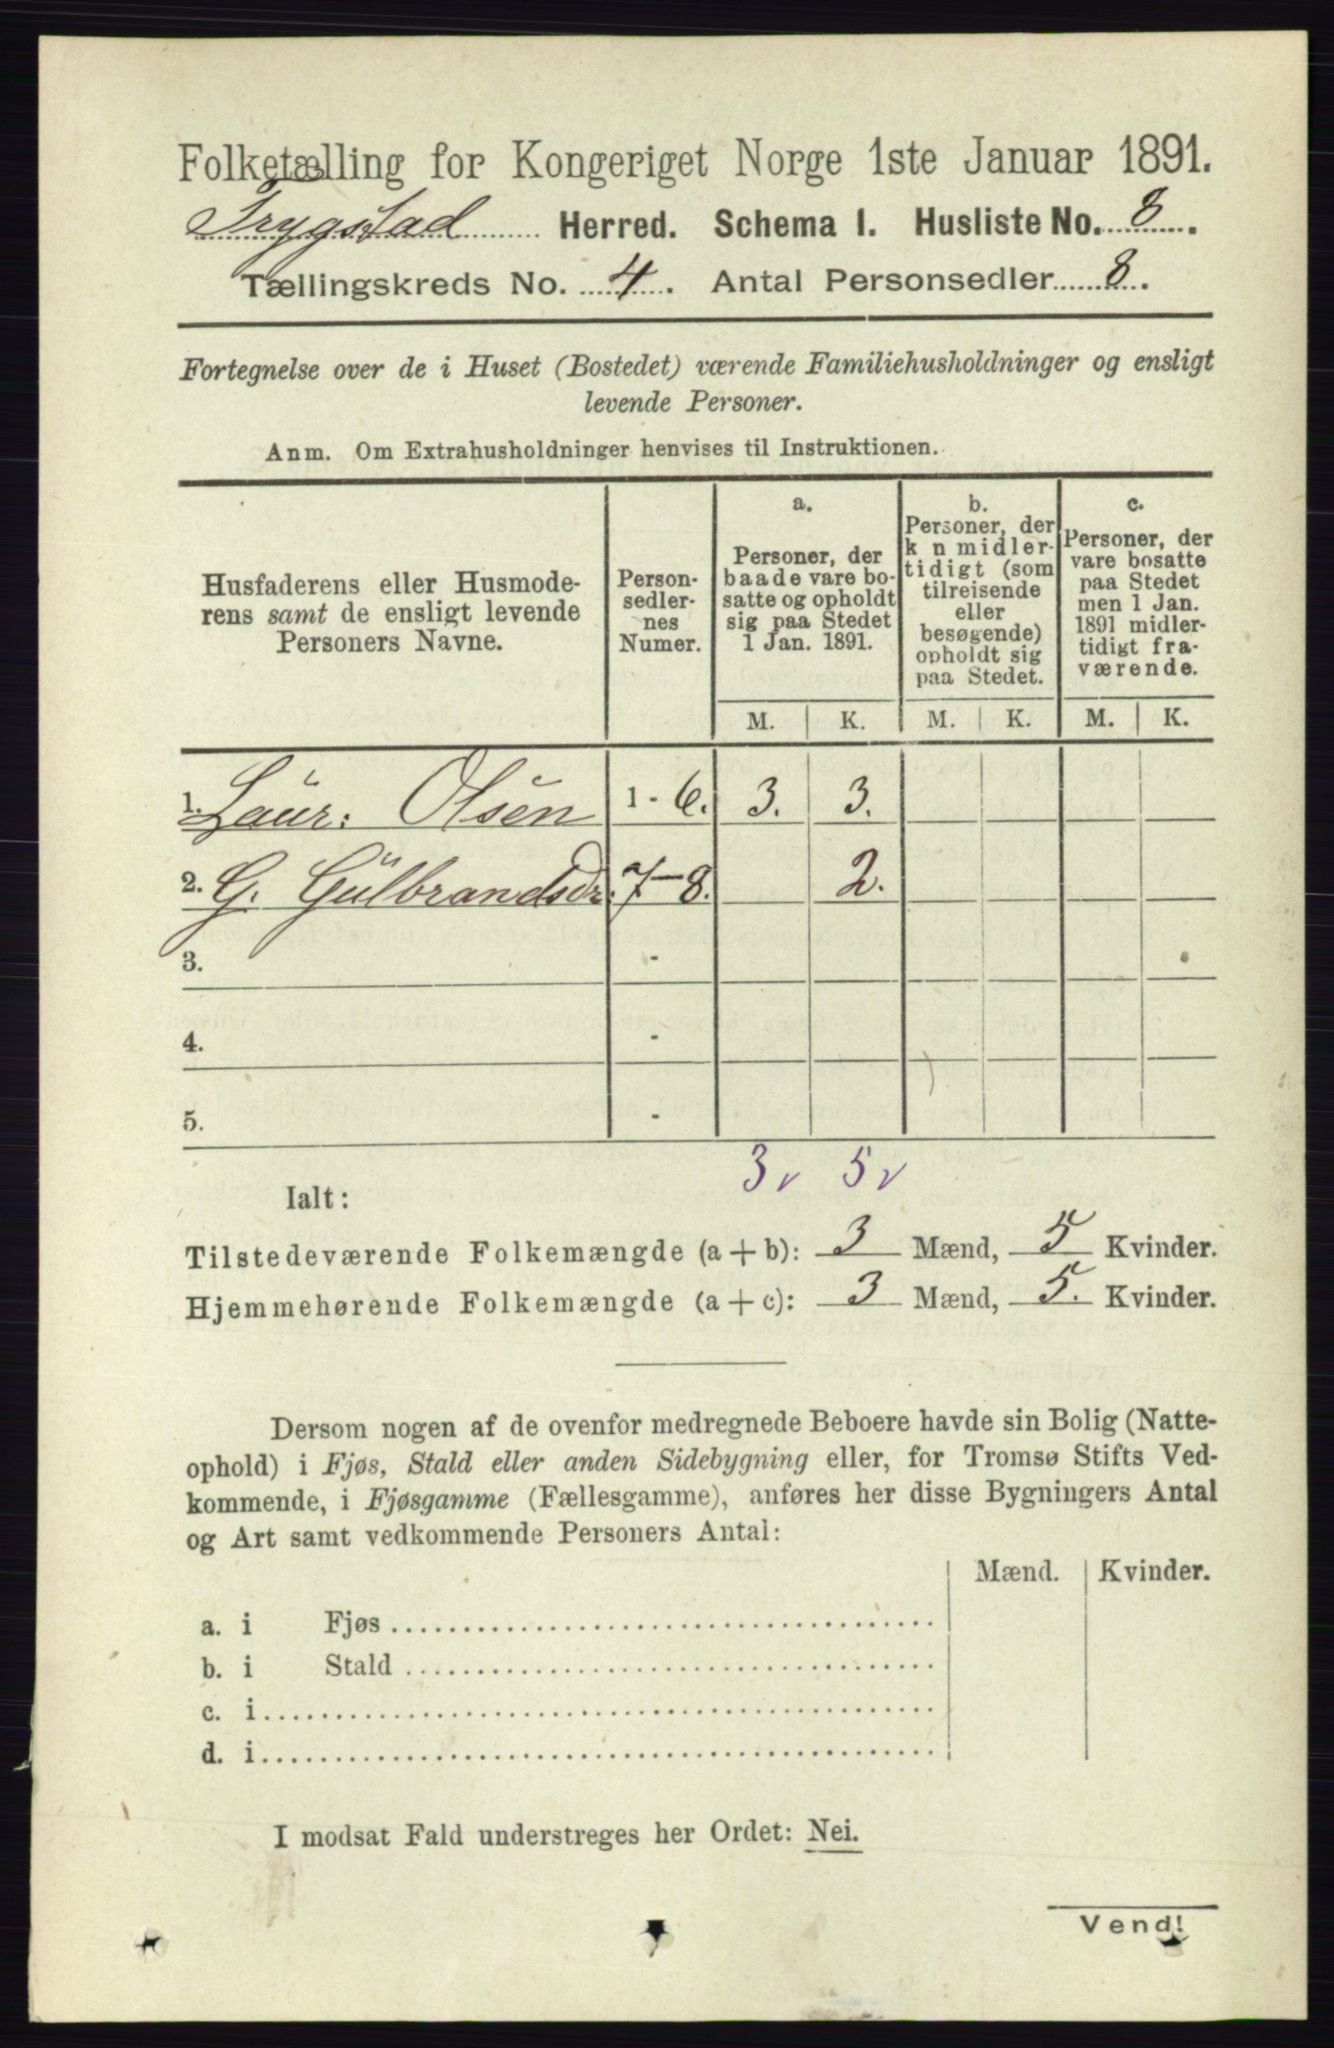 Folketælling for Kongeriget Norge 1ste Januar 1891.
Trygstad Herred. Schema I. Husliste No. 8.
Tællingskreds No. 4. Antal Personsedler 8.
Fortegnelse over de i Huset (Bostedet) værende Familiehusholdninger og ensligt
levende Personer.
Anm. Om Extrahusholdninger henvises til Instruktionen.
Husfaderens eller Husmode-
rens samt de ensligt levende
Personers Navne.
Person-
sedler-
nes
Numer.
a.
Personer, der
baade vare bo-
satte og opholdt
sig paa Stedet
1 Jan. 1891.
b.
Personer, der
k n midler-
tidigt (som
tilreisende
eller
besøgende)
opholdt sig
paa Stedet.
c.
Personer, der
vare bosatte
paa Stedet
men 1 Jan.
1891 midler-
tidigt fra-
værende.
M. K. M. K. M. K.
1. Laur: Olsen 1 - 6. 3. 3.
2. G. Gulbrandsdr. 7-8. 2.
3. -
4. -
5. -
3 v 5 v
Ialt:
Tilstedeværende Folkemængde (a + b): 3 Mænd, 5 Kvinder.
Hjemmehørende Folkemængde (a + c): 3 Mænd, 5. Kvinder.
Dersom nogen af de ovenfor medregnede Beboere havde sin Bolig (Natte-
ophold) i Fjøs, Stald eller anden Sidebygning eller, for Tromsø Stifts Ved-
kommende, i Fjøsgamme (Fællesgamme), anføres her disse Bygningers Antal
og Art samt vedkommende Personers Antal:
Mænd. Kvinder.
a. i Fjøs
b. i Stald
c. i
d. i
I modsat Fald understreges her Ordet: Nei.
Vend!